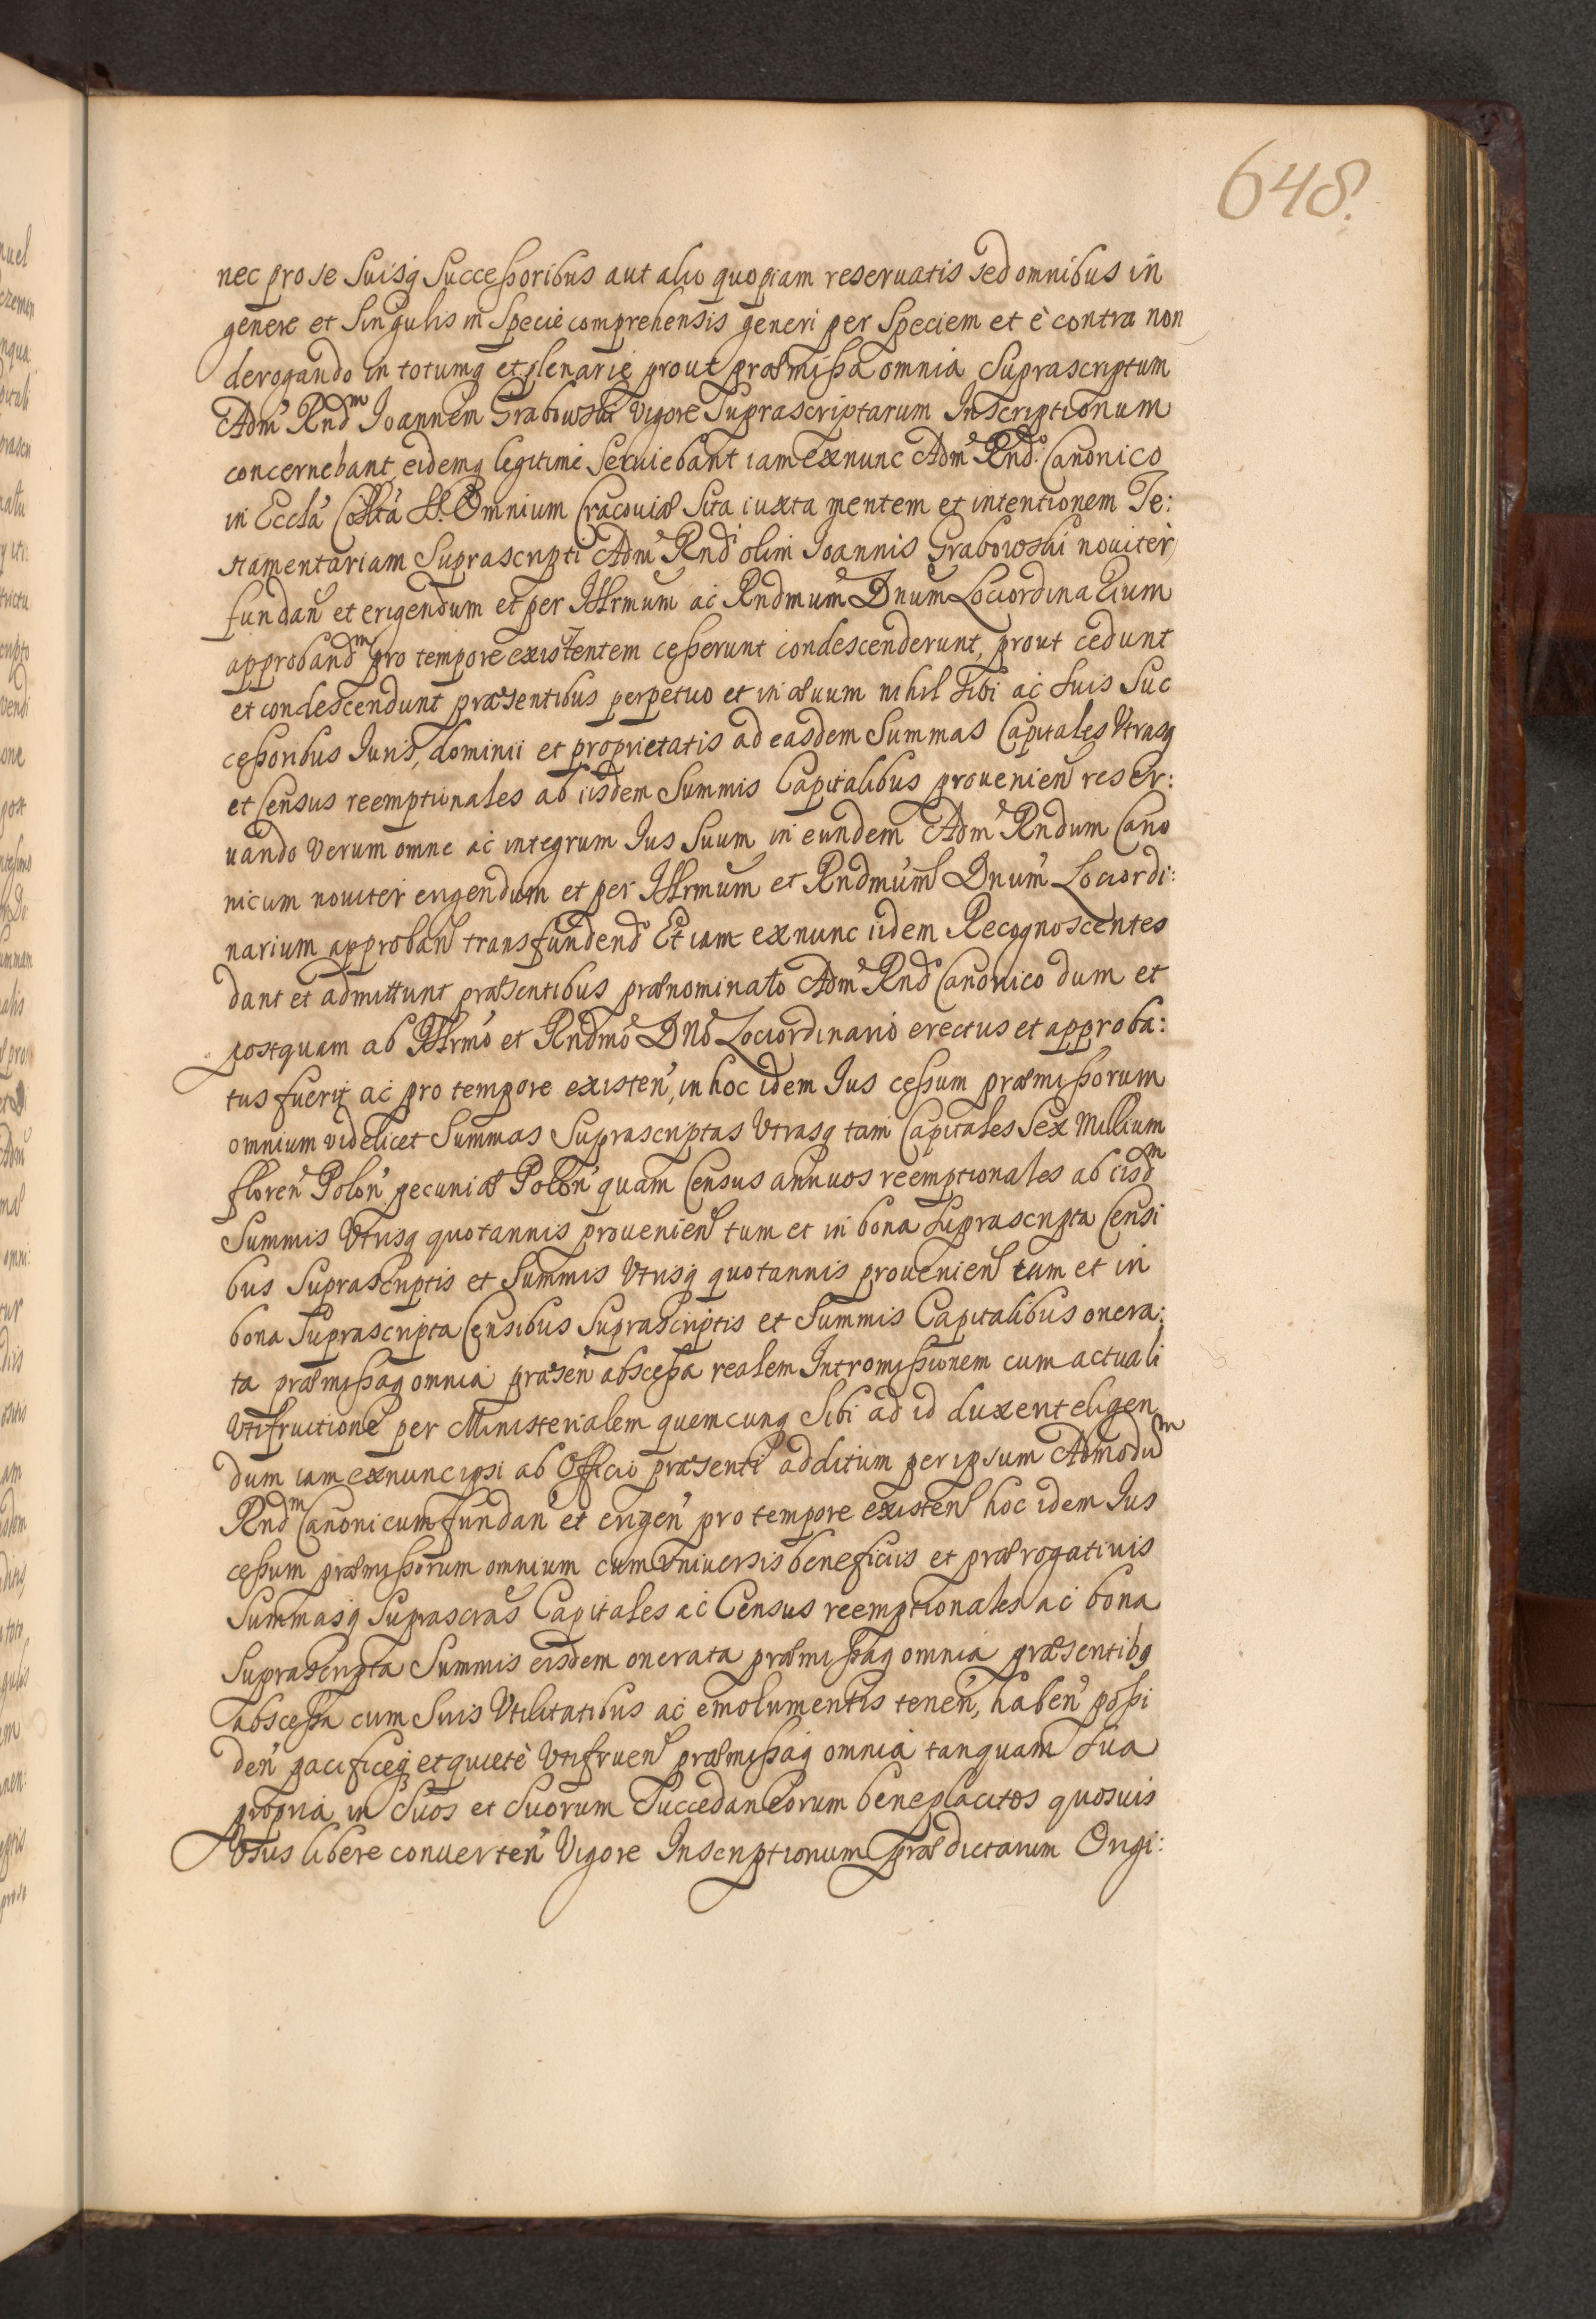 648.
nec pro se Suisq Successoribus aut alio quopiam reservatis sed omnibus in
genere et Singulis in Specie comprehensis generi per Speciem et è contra non
derogando in totumq et plenarie prout præmissa omnia Suprascriptum
Adm Rndm Ioannem Grabowski vigore Suprascriptarum Inscriptionum
concernebant, eidemq legitime Seruiebant iam exnunc Adm Rndo Canonico
in Eccla Collta SS. Omnium Cracouiæ Sita iuxta mentem et intentionem Te:
stamentariam Suprascripti Adm Rndi olim Ioannis Grabowski nouiter
fundan et erigendum et per Illrmum ac Rndmum Dnum Lociordinarium
approbandm pro tempore existentem cesserunt condescenderunt, prout cedunt
et condescendunt præsentibus perpetuo et in æuum nihil Sibi ac Suis Suc
cessoribus Iuris, dominii et proprietatis ad easdem Summas Capitales Vtrasq
et Census reemptionales ab iisdem Summis Capitalibus prouenien reser:
uando Verum omne ac integrum Ius Suum in eundem Adm Rndum Cano
nicum nouiter erigendum et per Illrmum et Rndmum Dnum Lociordi:
narium approban transfundend Et iam exnunc iidem Recognoscentes
dant et admittunt præsentibus prænominato Adm Rndo Canonico dum et
postquam ab Illrmo et Rndmo Dno Lociordinario erectus et approba:
tus fuerit ac pro tempore existen, in hoc idem Ius cessum præmissorum
omnium videlicet Summas Suprascriptas Vtrasq tam Capitales Sex Millium
floren Polon pecuniæ Polon quam Census annuos reemptionales ab iisdm
Summis Vtrisq quotannis prouenien tum et in bona Suprascripta Censi
bus Suprascriptis et Summis Vtrisq quotannis prouenien tum et in
bona Suprascripta Censibus Suprascriptis et Summis Capitalibus onera:
ta præmissaq omnia præsen abscessa realem Intromissionem cum actuali
Vtifruitione per Ministerialem quemcunq Sibi ad id duxerit eligen
dum iam exnunc ipsi ab Officio præsenti additum per ipsum Admodum
Rndm Canonicum fundan et erigen pro tempore existen hoc idem Ius
cessum præmissorum omnium cum vniuersis beneficiis et prærogatiuis
Summasq Suprascras Capitales ac Census reemptionales ac bona
Suprascripta Summis eisdem onerata præmissaq omnia præsentibq
abscessa cum Suis Vtilitatibus ac emolumentis tenen, haben possi
den pacificeq et quietè Vtifruen præmissaq omnia tanquam Sua
propria in Suos et Suorum Succedaneorum beneplacitos quosuis
Vsus libere conuerten Vigore Inscriptionum prædictarum Origi: